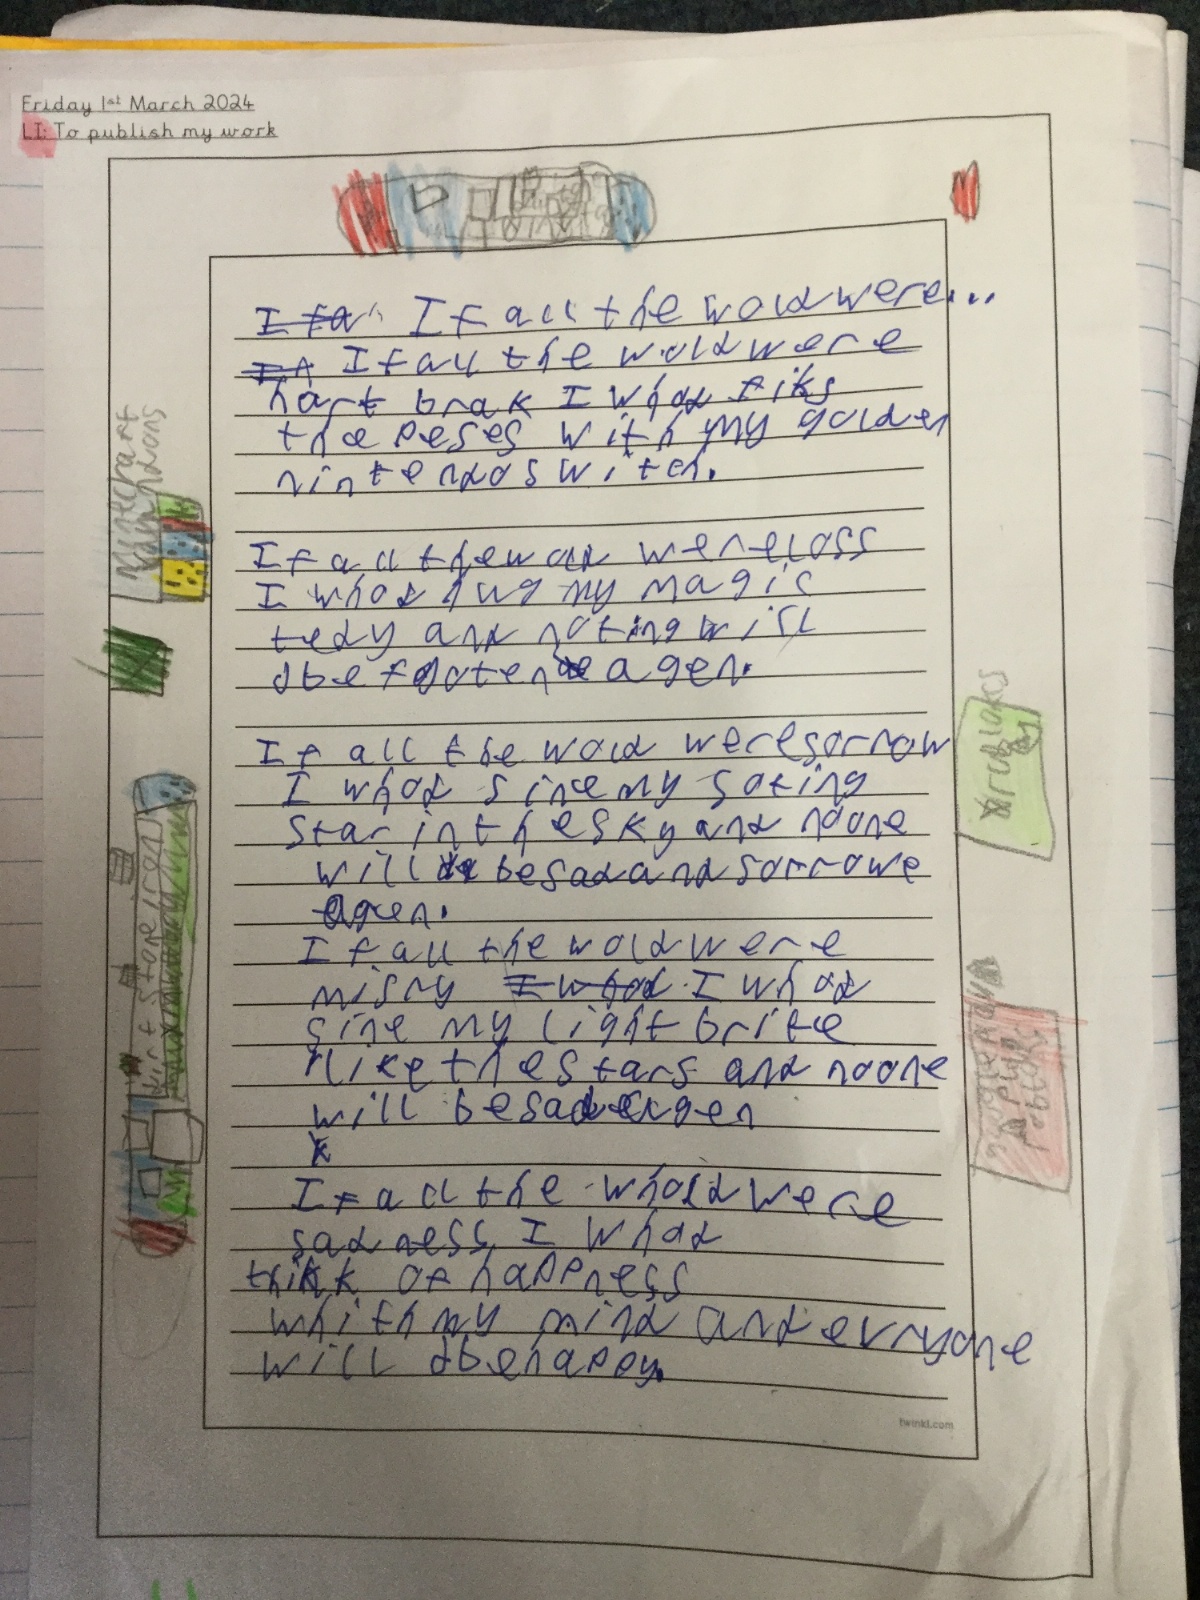 Friday 1st March 2024
LI: To publish my work
If all the wold were...
If all the wold were
hart brak I whod fiks
the peses with my golden
nintendo switch.
If all the wold were loss
I whod hug my magic
tedy and noting will
be fgoten agen.
If all the wold were sorrow
I whod sine my soting
star in the sky and noone
will be sad and sorrowe
agen.
If all the wold were
misry I whod
sine my light brite
like the stars and noone
will be sad agen
If all the whold were
sadness, I whod
think of happness
whith my mind and evryone
will be happy.
twinkl.com
Minecraft
Dirt Stone iron